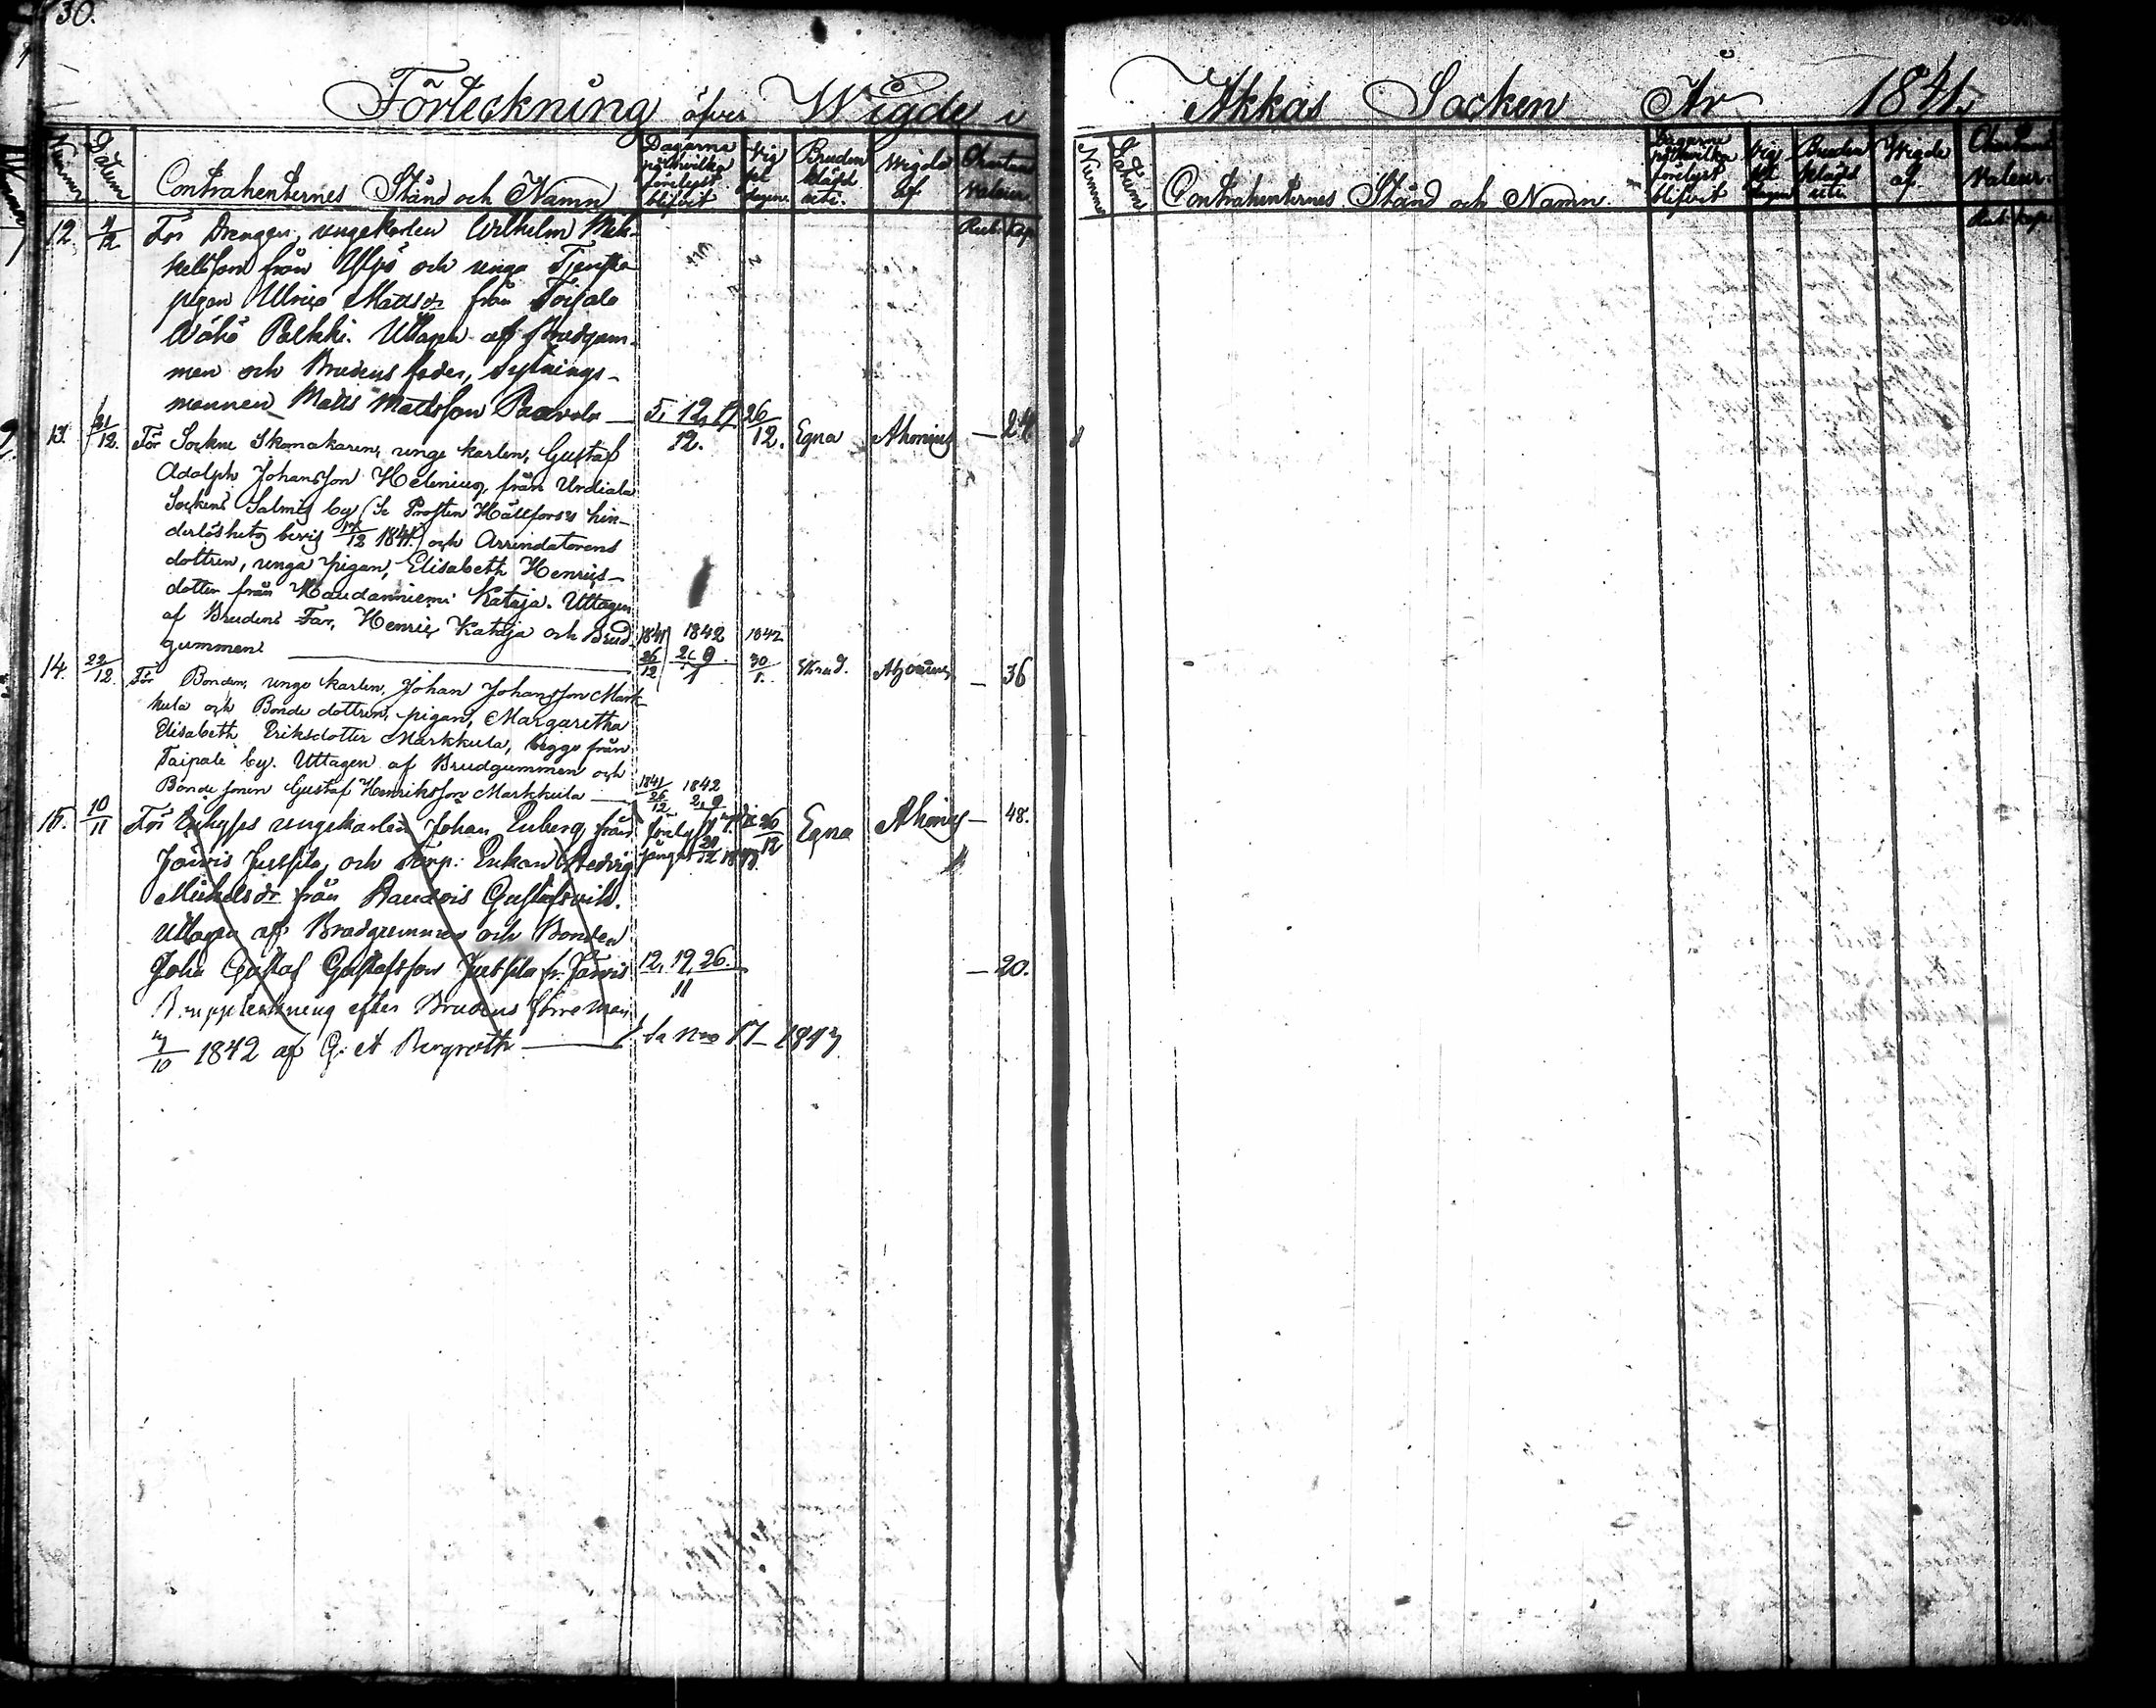 30.
Förteckning öfver Wigde i Akkas Socken År 1841.
Nummer Datum Contrahenternes Stånd och Namn Dagarna påhvilka förelyst blifvit Vigsel dagen. Bruden klädd uti. Wigde af Chartæ Valeur. Rub. Kop.
12. 4/12 För Drengen, ungekarlen Wilhelm Mik-
kelsson från Ylpö och unga Tjenste
pigan Ulrica Mattsdr från Toijala
Wähä Pelkki. Uttagen af Brudgum-
men och Brudens fader, Sytnings-
mannen Matts Mattsson Paavola — 5, 12, 19/12. 26/12. Egna Ahonius — 24
13. 21/12. För Sockne Skomakaren, unge karlen, Gustaf
Adolph Johansson Helenius, från Urdiala
Sockens Salmis by (Se Prosten Hällfors's hin-
derlöshets bevis /12 1841.) och Arrendatorens
dottren, unga pigan, Elisabeth Henrics-
dotter från Haudanniemi Kataja. Uttagen
af Brudens Far, Henric Kataja och Brud-
gummen — 1841 26/12 1842 2, 9/1 1842 30/1. Ahonius — 36
14. 22/12. För Bonden, unge karlen, Johan Johansson Mark-
kula och Bonde dottren, pigan, Margaretha
Elisabeth Eriksdotter Markkula, begge från
Taipale by. Uttagen af Brudgummen och
Bonde sonen Gustaf Henriksson Markkula — 1841 26/12 1842 2, 9/1 26/12 Egna Ahonius — 48.
15. 10/11 För ungekarlen Johan Enberg från
Järvis Jussila, och Enkan Hedvig
Mickelsdr från Gustafsvik.
Uttagen af Brudgummen och Bonden
Joha Gustaf Gustafsson Jussila fr. Järvis 12, 19, 26./11 — 20.
efter Brudens förre man
/10 1842 af G. A Bergroth — Se No 17 1843
Nummer Datum Contrahenternes Stånd och Namn. Dagarna påhvilka förelyst blifvit Vigsel dagen Bruden klädd uti Wigde af. Chartæ Valeur. Rub. Kop.